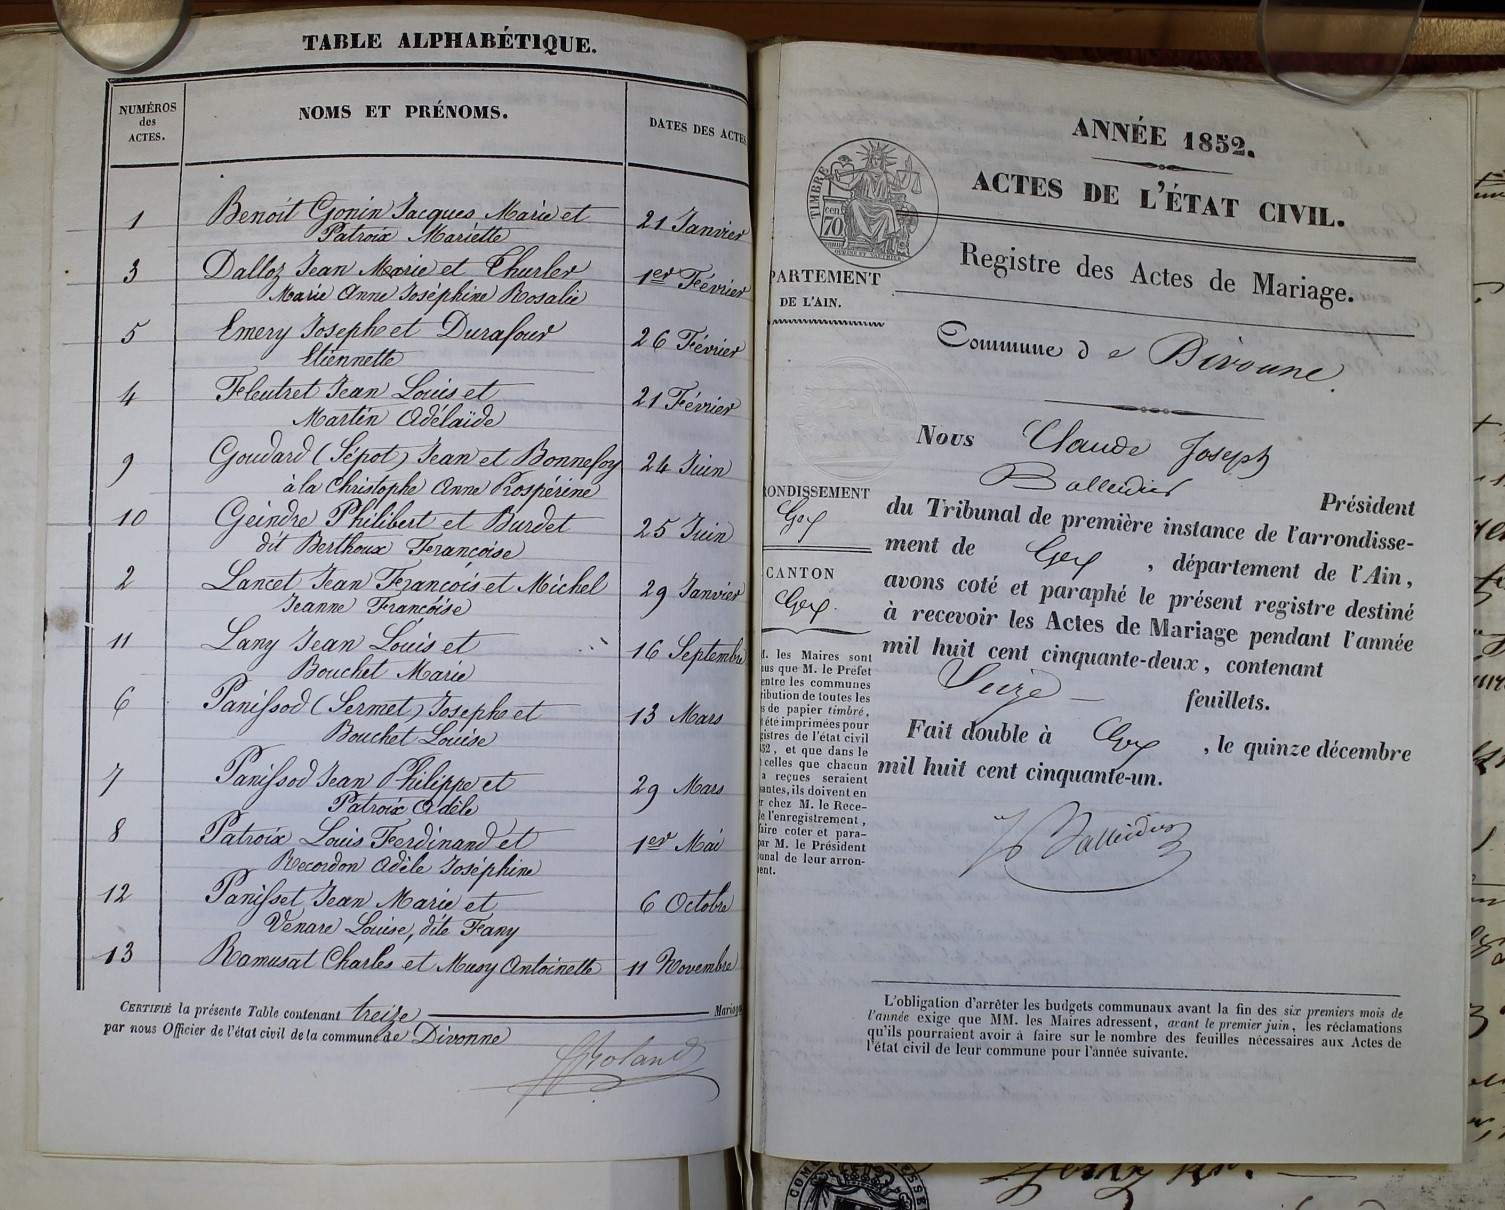 TABLE ALPHABÉTIQUE.
NUMÉROS
des
ACTES.
NOMS ET PRÉNOMS.
DATES DES ACTES
1 Benoit Gonin Jacques Marie et 21 Janvier
Patroix Mariette
3 Dalloz Jean Marie et Thurler 1er Février
Marie Anne Joséphine Rosalie
5 Emery Joseph et Durafour 26 Février
Etiennette
4 Fleutret Jean Louis et 21 Février
Martin Adélaïde
9 Goudard (Sépot) Jean et Bonnefoy 24 Juin
à la Christophe Anne Prospérine
10 Geindre Philibert et Burdet 25 Juin
dit Berthoux Françoise
2 Lancet Jean François et Michel 29 Janvier
Jeanne Françoise
11 Lany Jean Louis et 16 Septembre
Bouchet Marie
6 Panissod (Sermet) Joseph et 13 Mars
Bouchet Louise
7 Panissod Jean Philippe et 29 Mars
Patroix Adèle
8 Patroix Louis Ferdinand et 1er Mai
Recordon Adèle Joséphine
12 Panisset Jean Marie et 6 Octobre
Venare Louise, dite Fany
13 Ramusat Charles et Musy Antoinette 11 Novembre
CERTIFIÉ la présente Table contenant treize Mariages
par nous Officier de l'état civil de la commune de Divonne
Roland
ANNÉE 1852.
ACTES DE L'ÉTAT CIVIL.
TIMBRE
70
cen
PARTEMENT
DE L'AIN.
Registre des Actes de Mariage.
Commune de Divonne.
Nous Claude Joseph
Balleidier Président
du Tribunal de première instance de l'arrondisse-
ment de Gex, département de l'Ain,
avons coté et paraphé le présent registre destiné
à recevoir les Actes de Mariage pendant l'année
mil huit cent cinquante-deux, contenant
Seize feuillets.
Fait double à Gex, le quinze décembre
mil huit cent cinquante-un.
Balleidier
RONDISSEMENT
Gex
CANTON
Gex.
M. les Maires sont
us que M. le Préfet
entre les communes
ribution de toutes les
s de papier timbré,
t été imprimées pour
gistres de l'état civil
52, et que dans le
celles que chacun
a reçues seraient
antes, ils doivent en
r chez M. le Rece-
e l'enregistrement,
aire coter et para-
par M. le Président
unal de leur arron-
ent.
L'obligation d'arrêter les budgets communaux avant la fin des six premiers mois de
l'année exige que MM. les Maires adressent, avant le premier juin, les réclamations
qu'ils pourraient avoir à faire sur le nombre des feuilles nécessaires aux Actes de
l'état civil de leur commune pour l'année suivante.